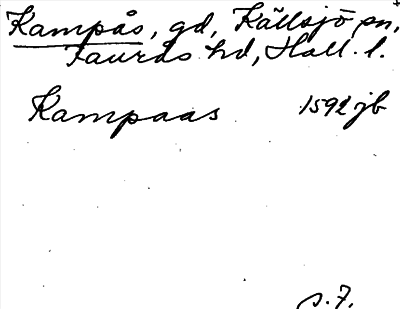 Kampås, gd, Källsjö sn,
Faurås hd, Hall. l.
Kampaas 1592 jb
s. 7.